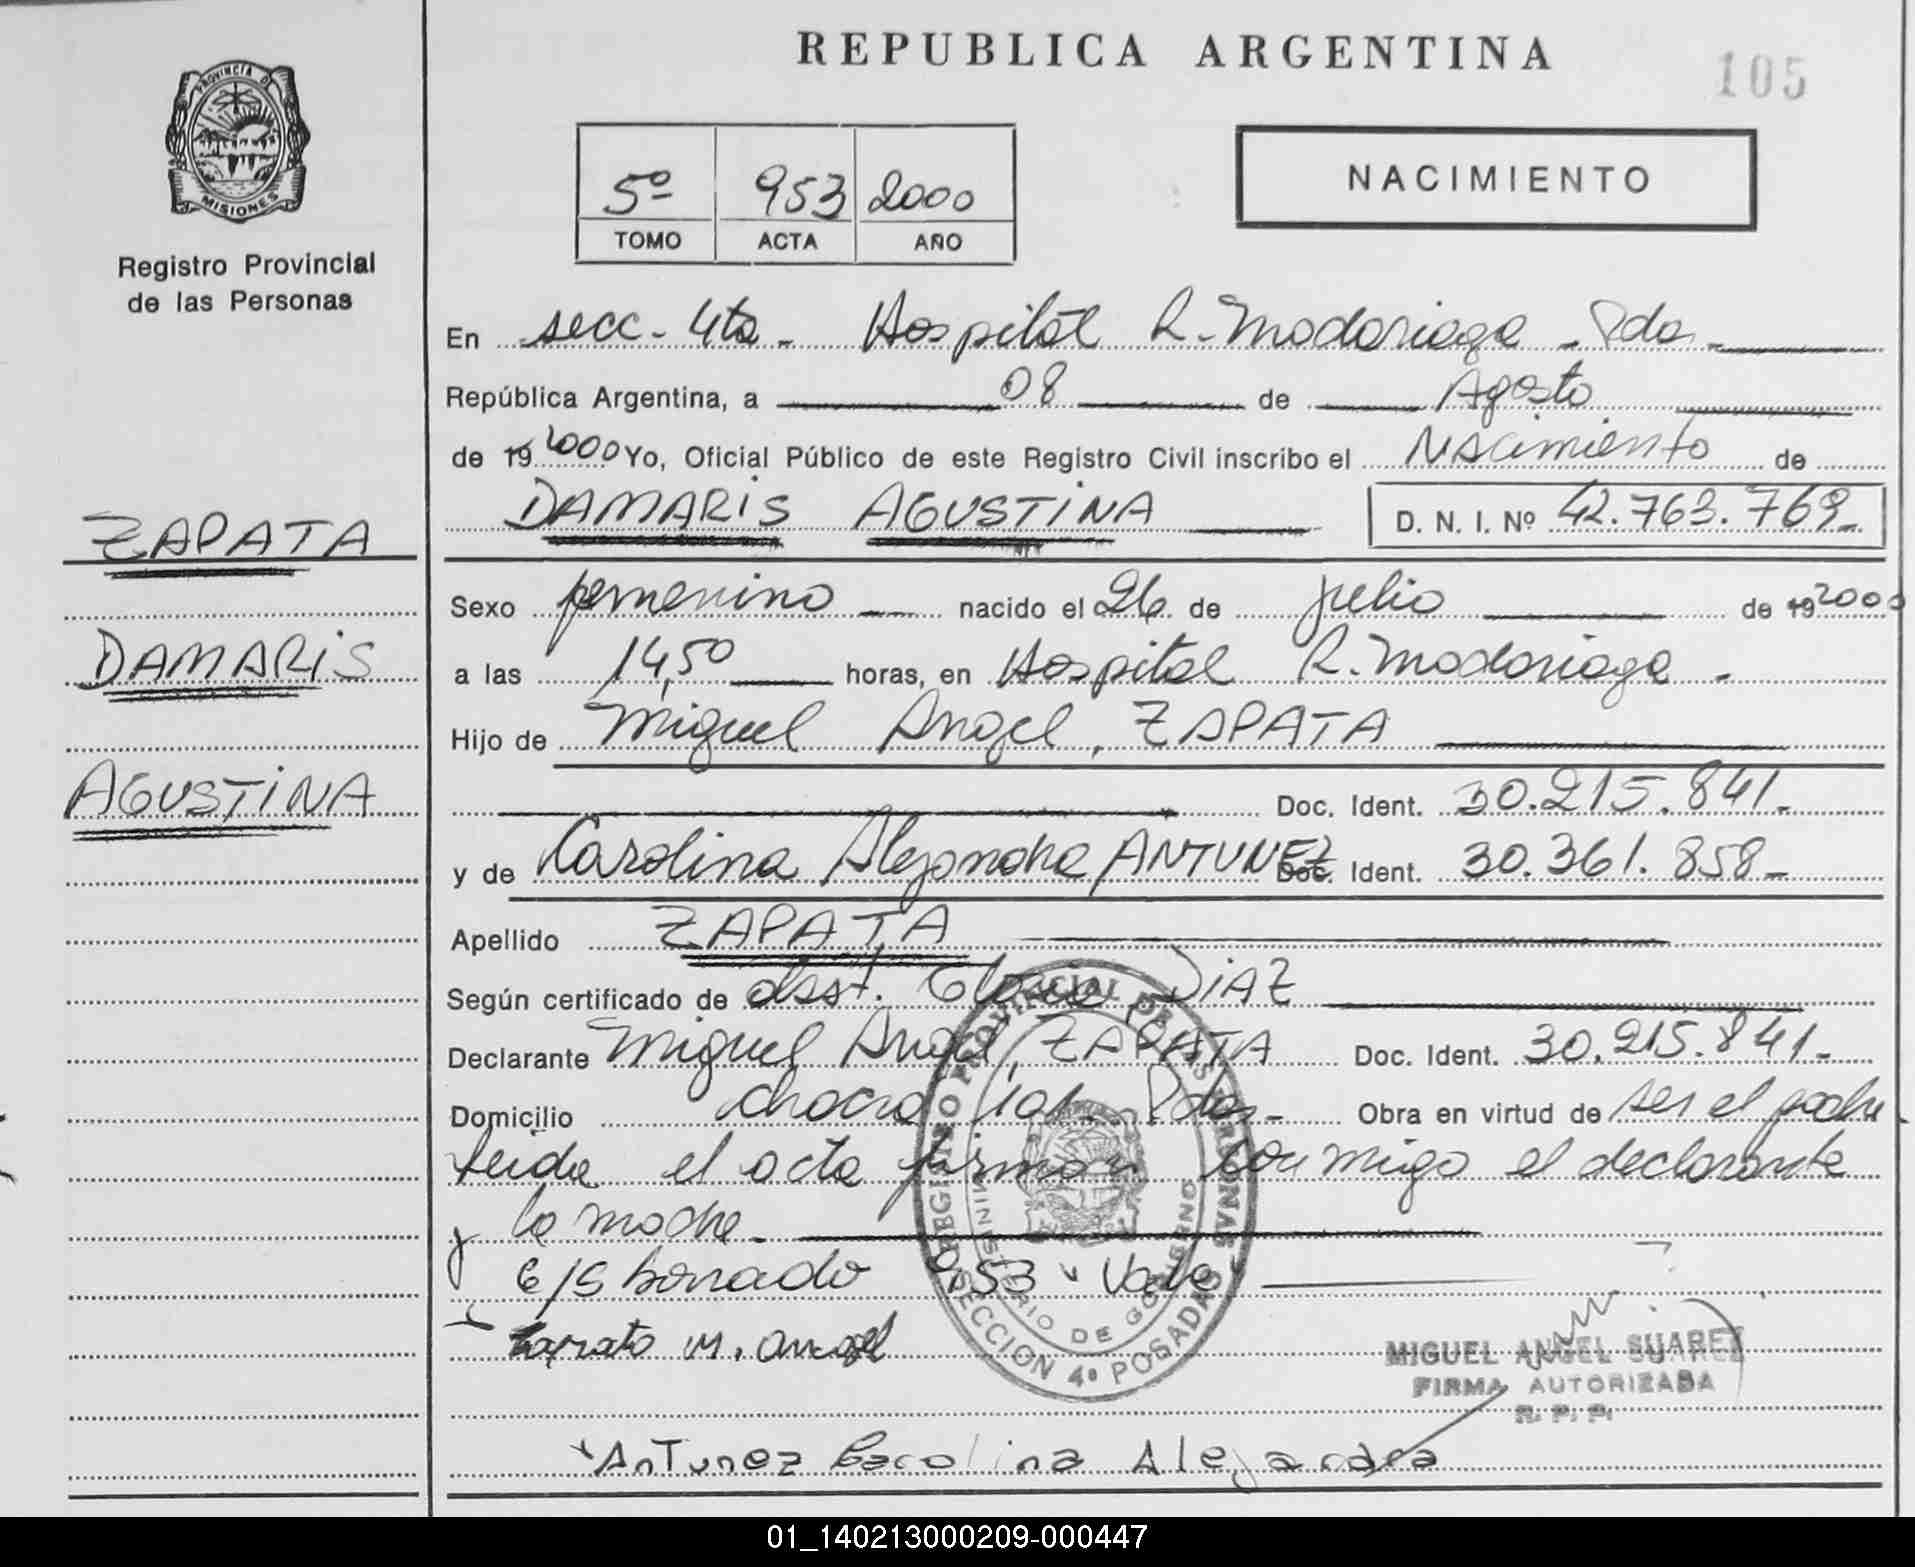 REPUBLICA ARGENTINA
105
PROVINCIA DE
MISIONES
Registro Provincial
de las Personas
5º 953 2000
TOMO ACTA AÑO
NACIMIENTO
En secc- 4ta - Hospital R. Madariaga - Pdas -
República Argentina, a 08 de Agosto
de 19 2000 Yo, Oficial Público de este Registro Civil inscribo el Nacimiento de
DAMARIS AGUSTINA D. N. I. Nº 42.763.769-
ZAPATA
DAMARIS
AGUSTINA
Sexo femenino nacido el 26 de julio de 19 2000
a las 14,50 horas, en Hospital R. Madariaga -
Hijo de Miguel Angel, ZAPATA
Doc. Ident. 30.215.841-
y de Carolina Alejandra ANTUNEZ Doc. Ident. 30.361.858-
Apellido ZAPATA
Según certificado de DIAZ
Declarante Miguel Angel, ZAPATA Doc. Ident. 30.215.841-
Domicilio chacra Pdas- Obra en virtud de ser el padre
leida el acta firman conmigo el declarante
y la madre -
E/S borrado 953 Vale
Zapata M. Angel
REGISTRO PROVINCIAL DE LAS PERSONAS
MINISTERIO DE GOBIERNO
SECCION 4º POSADAS
MIGUEL ANGEL SUAREZ
FIRMA AUTORIZADA
R. P. P.
Antunez Carolina Alejandra
01_140213000209-000447